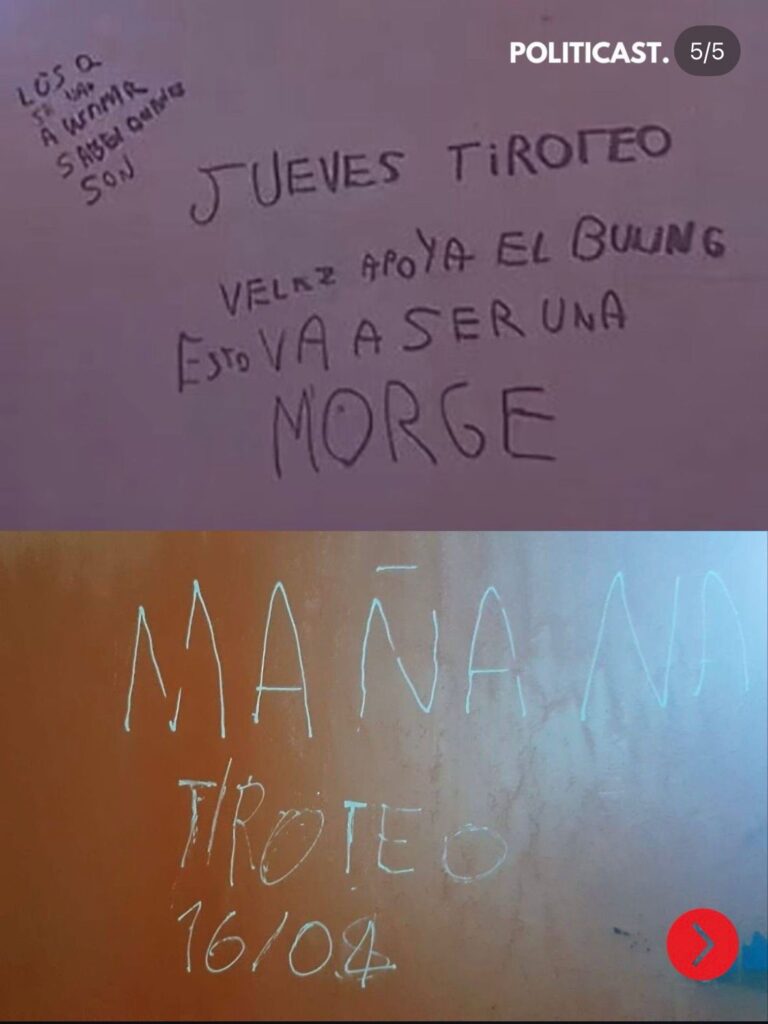 POLITICAST. 5/5
LOS Q
SE VAN
A
SABEN QUIENES
SON
JUEVES TIROTEO
VELAZ APOYA EL BULING
ESTO VA A SER UNA
MORGE
MAÑANA
TIROTEO
16/04